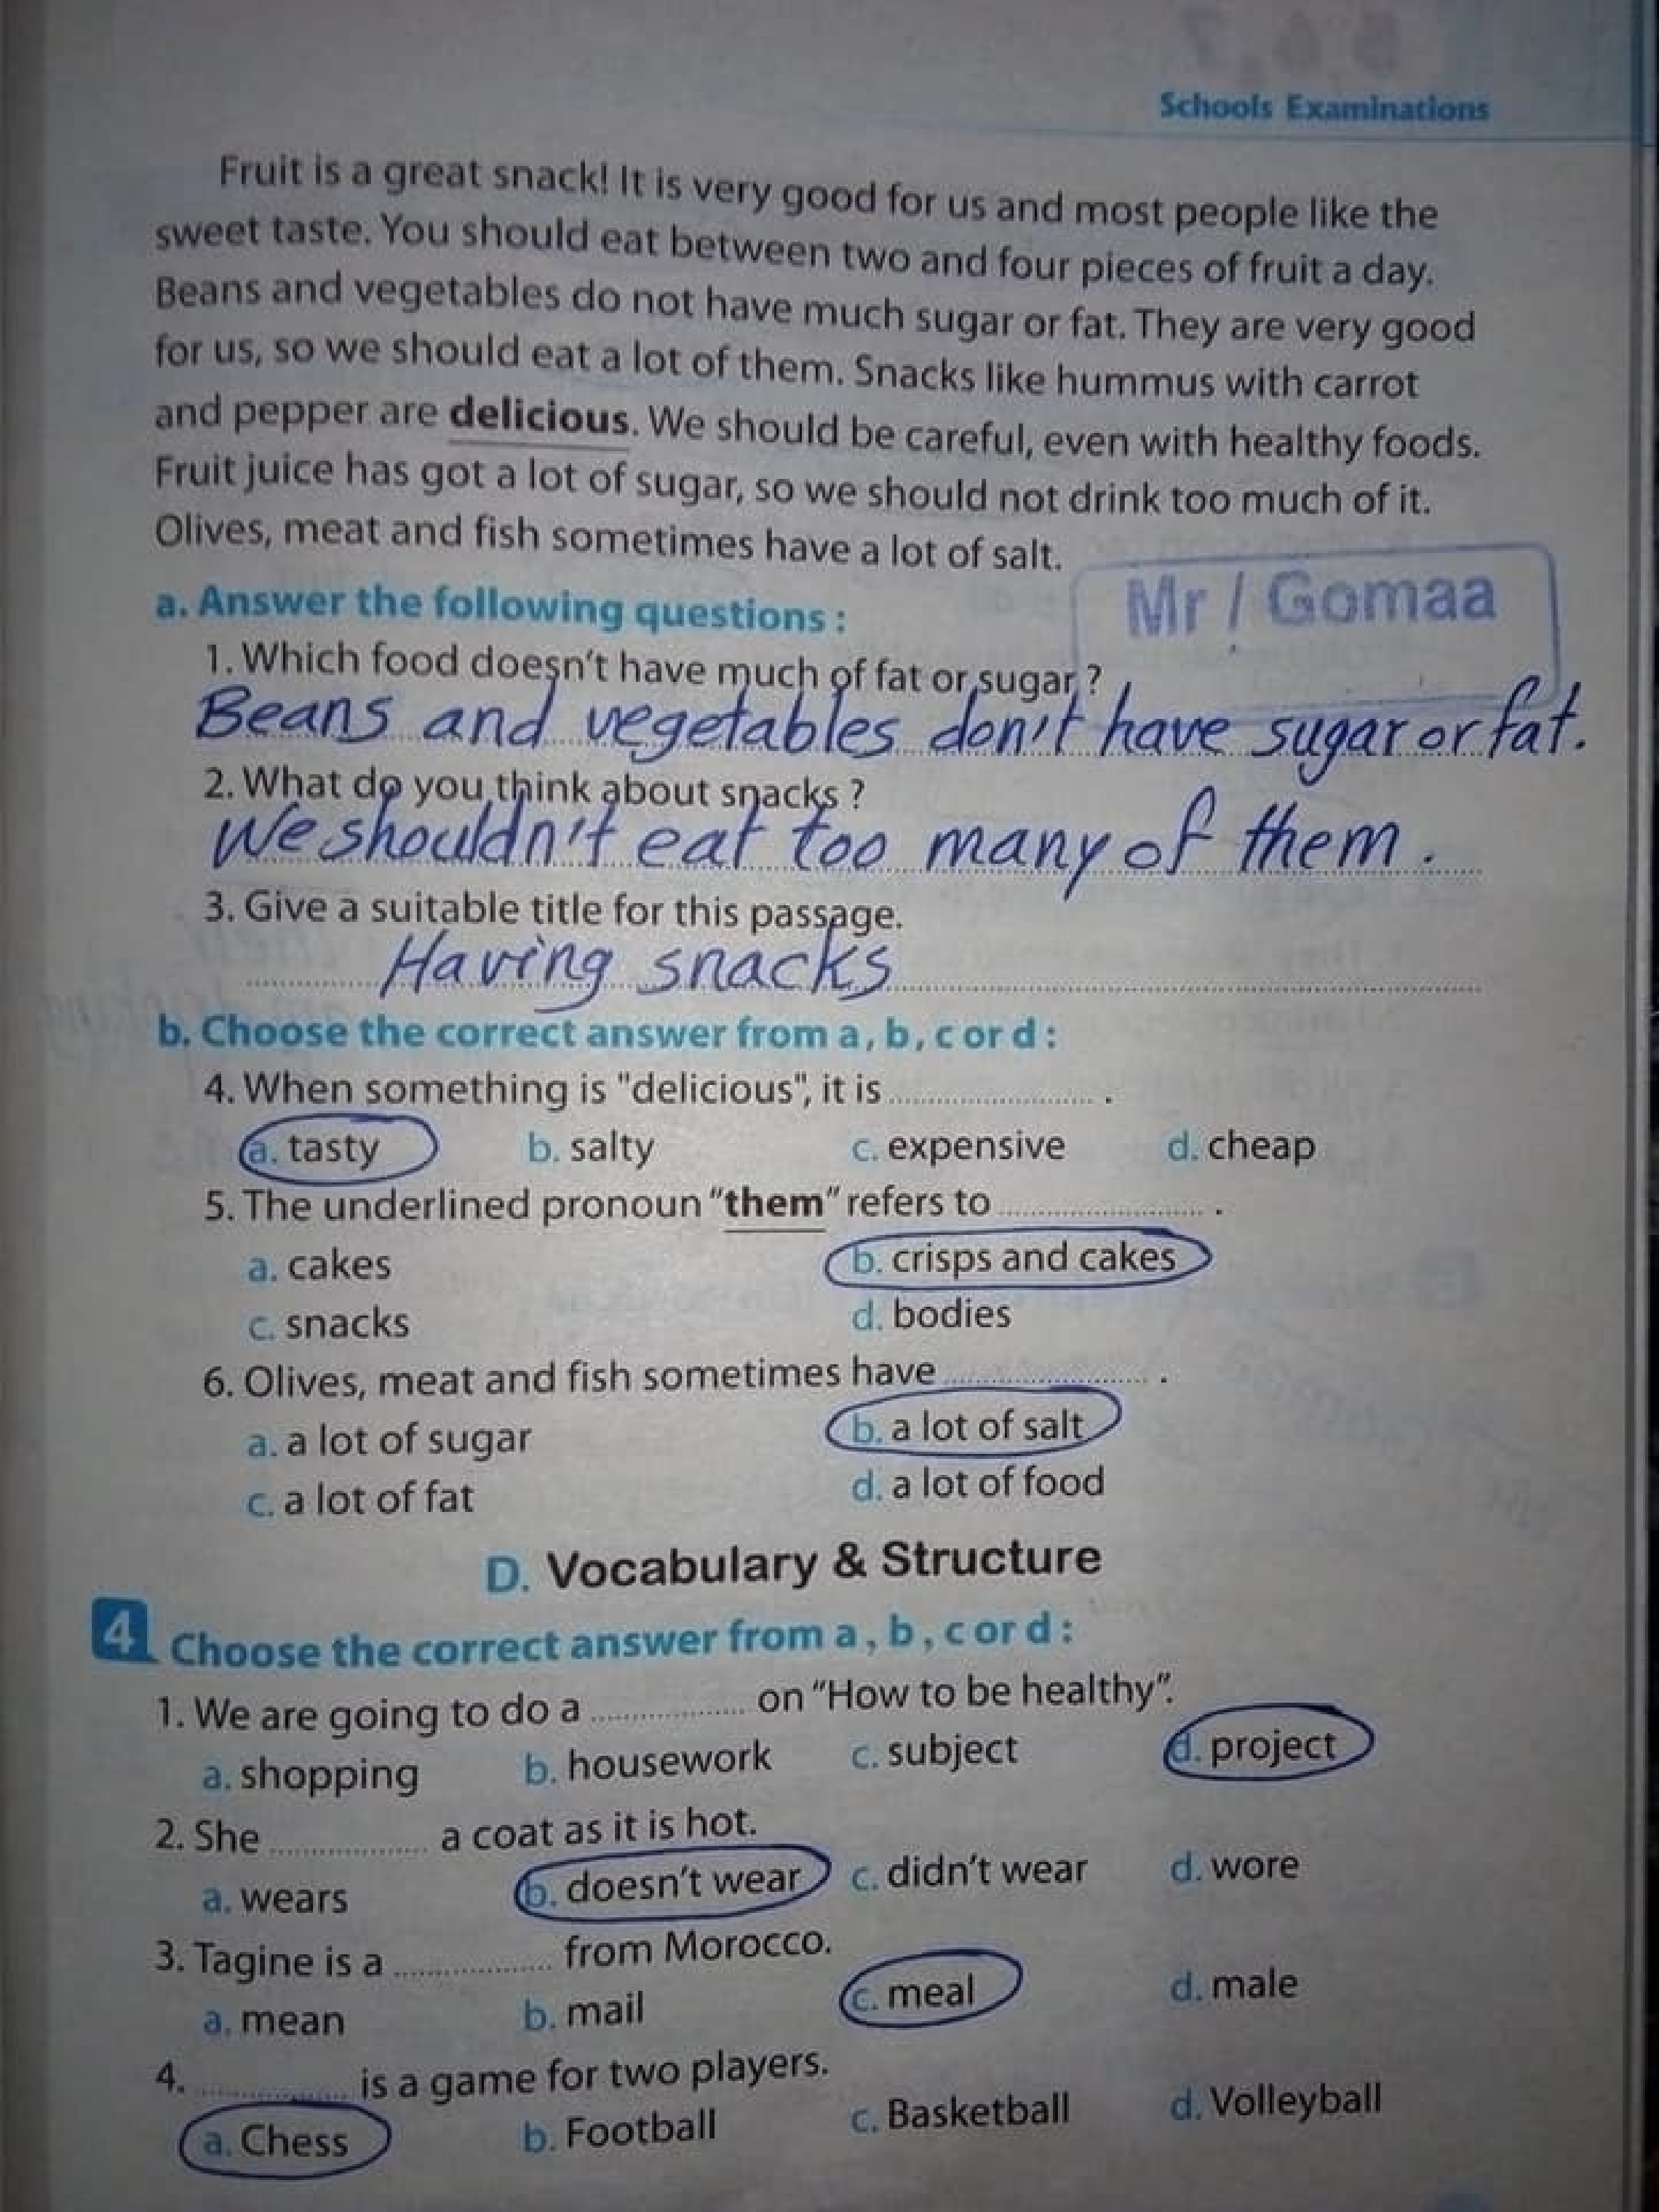 Schools Examinations
Fruit is a great snack! It is very good for us and most people like the
sweet taste. You should eat between two and four pieces of fruit a day.
Beans and vegetables do not have much sugar or fat. They are very good
for us, so we should eat a lot of them. Snacks like hummus with carrot
and pepper are delicious. We should be careful, even with healthy foods.
Fruit juice has got a lot of sugar, so we should not drink too much of it.
Olives, meat and fish sometimes have a lot of salt.
Mr / Gomaa
a. Answer the following questions :
1. Which food doesn't have much of fat or sugar ?
Beans and vegetables don't have sugar or fat.
2. What do you think about snacks ?
We shouldn't eat too many of them.
3. Give a suitable title for this passage.
Having snacks
b. Choose the correct answer from a, b, c or d :
4. When something is "delicious", it is .................... .
a. tasty b. salty c. expensive d. cheap
5. The underlined pronoun "them" refers to .................... .
a. cakes b. crisps and cakes
c. snacks d. bodies
6. Olives, meat and fish sometimes have .................... .
a. a lot of sugar b. a lot of salt
c. a lot of fat d. a lot of food
D. Vocabulary & Structure
4 Choose the correct answer from a, b, c or d :
1. We are going to do a ............... on "How to be healthy".
a. shopping b. housework c. subject d. project
2. She ............... a coat as it is hot.
a. wears b. doesn't wear c. didn't wear d. wore
3. Tagine is a ............... from Morocco.
a. mean b. mail c. meal d. male
4. ............... is a game for two players.
a. Chess b. Football c. Basketball d. Volleyball